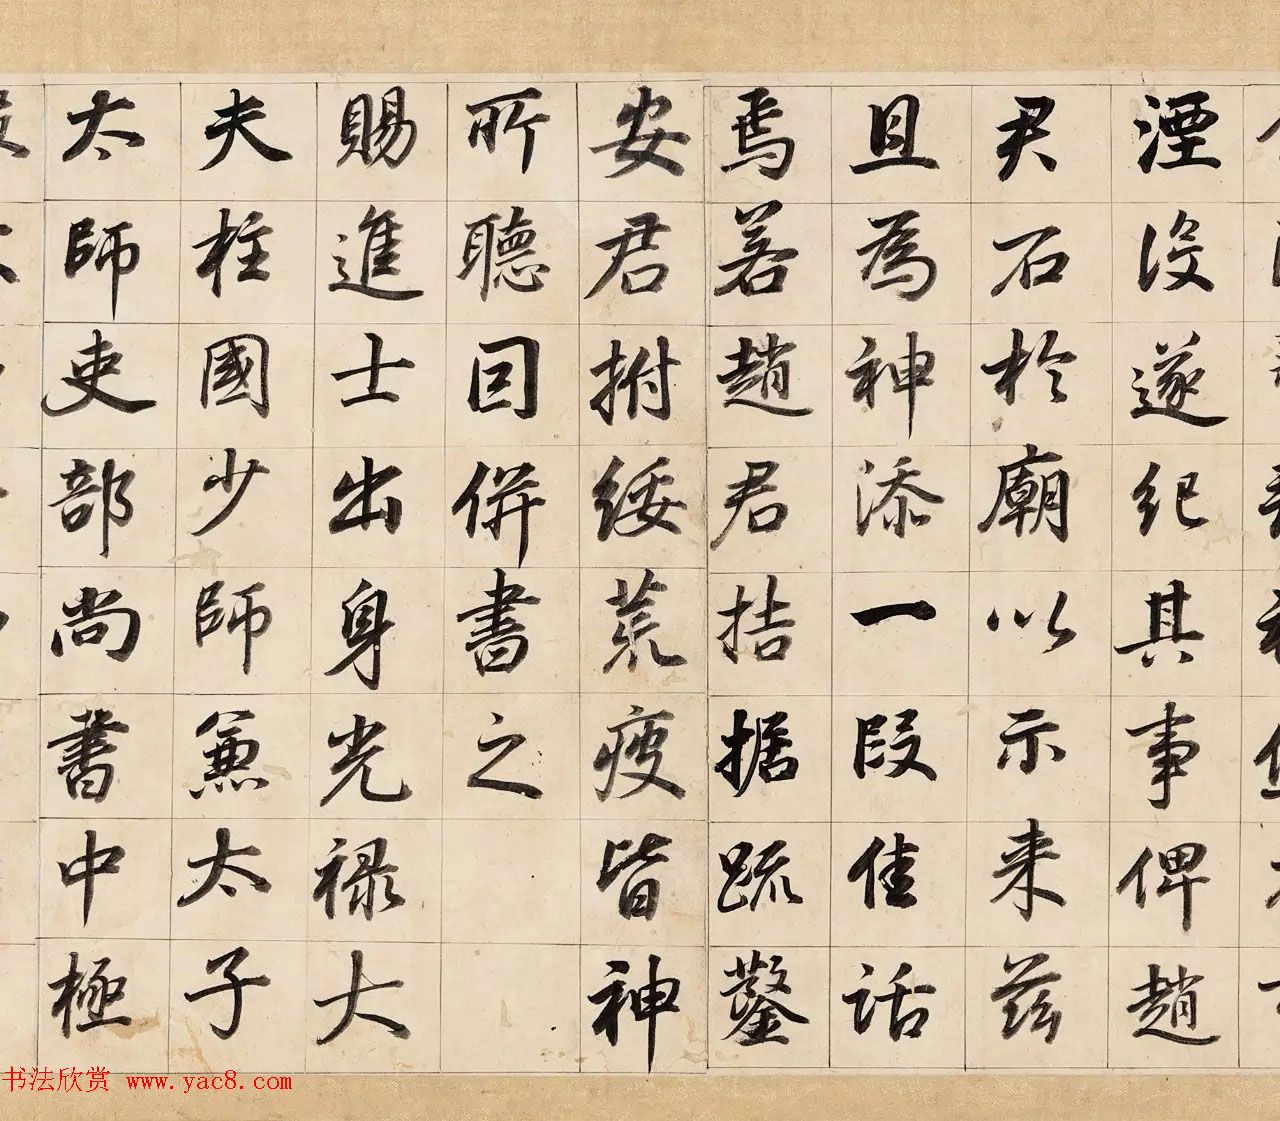 湮没遂纪其事俾趙
君石於廟以示来兹
且為神添一段佳話
焉若趙君拮据䟽鑿
安君拊綏荒疫皆神
所聽因併書之
賜進士出身光禄大
夫柱國少師兼太子
太師吏部尚書中極
书法欣赏 www.yac8.com